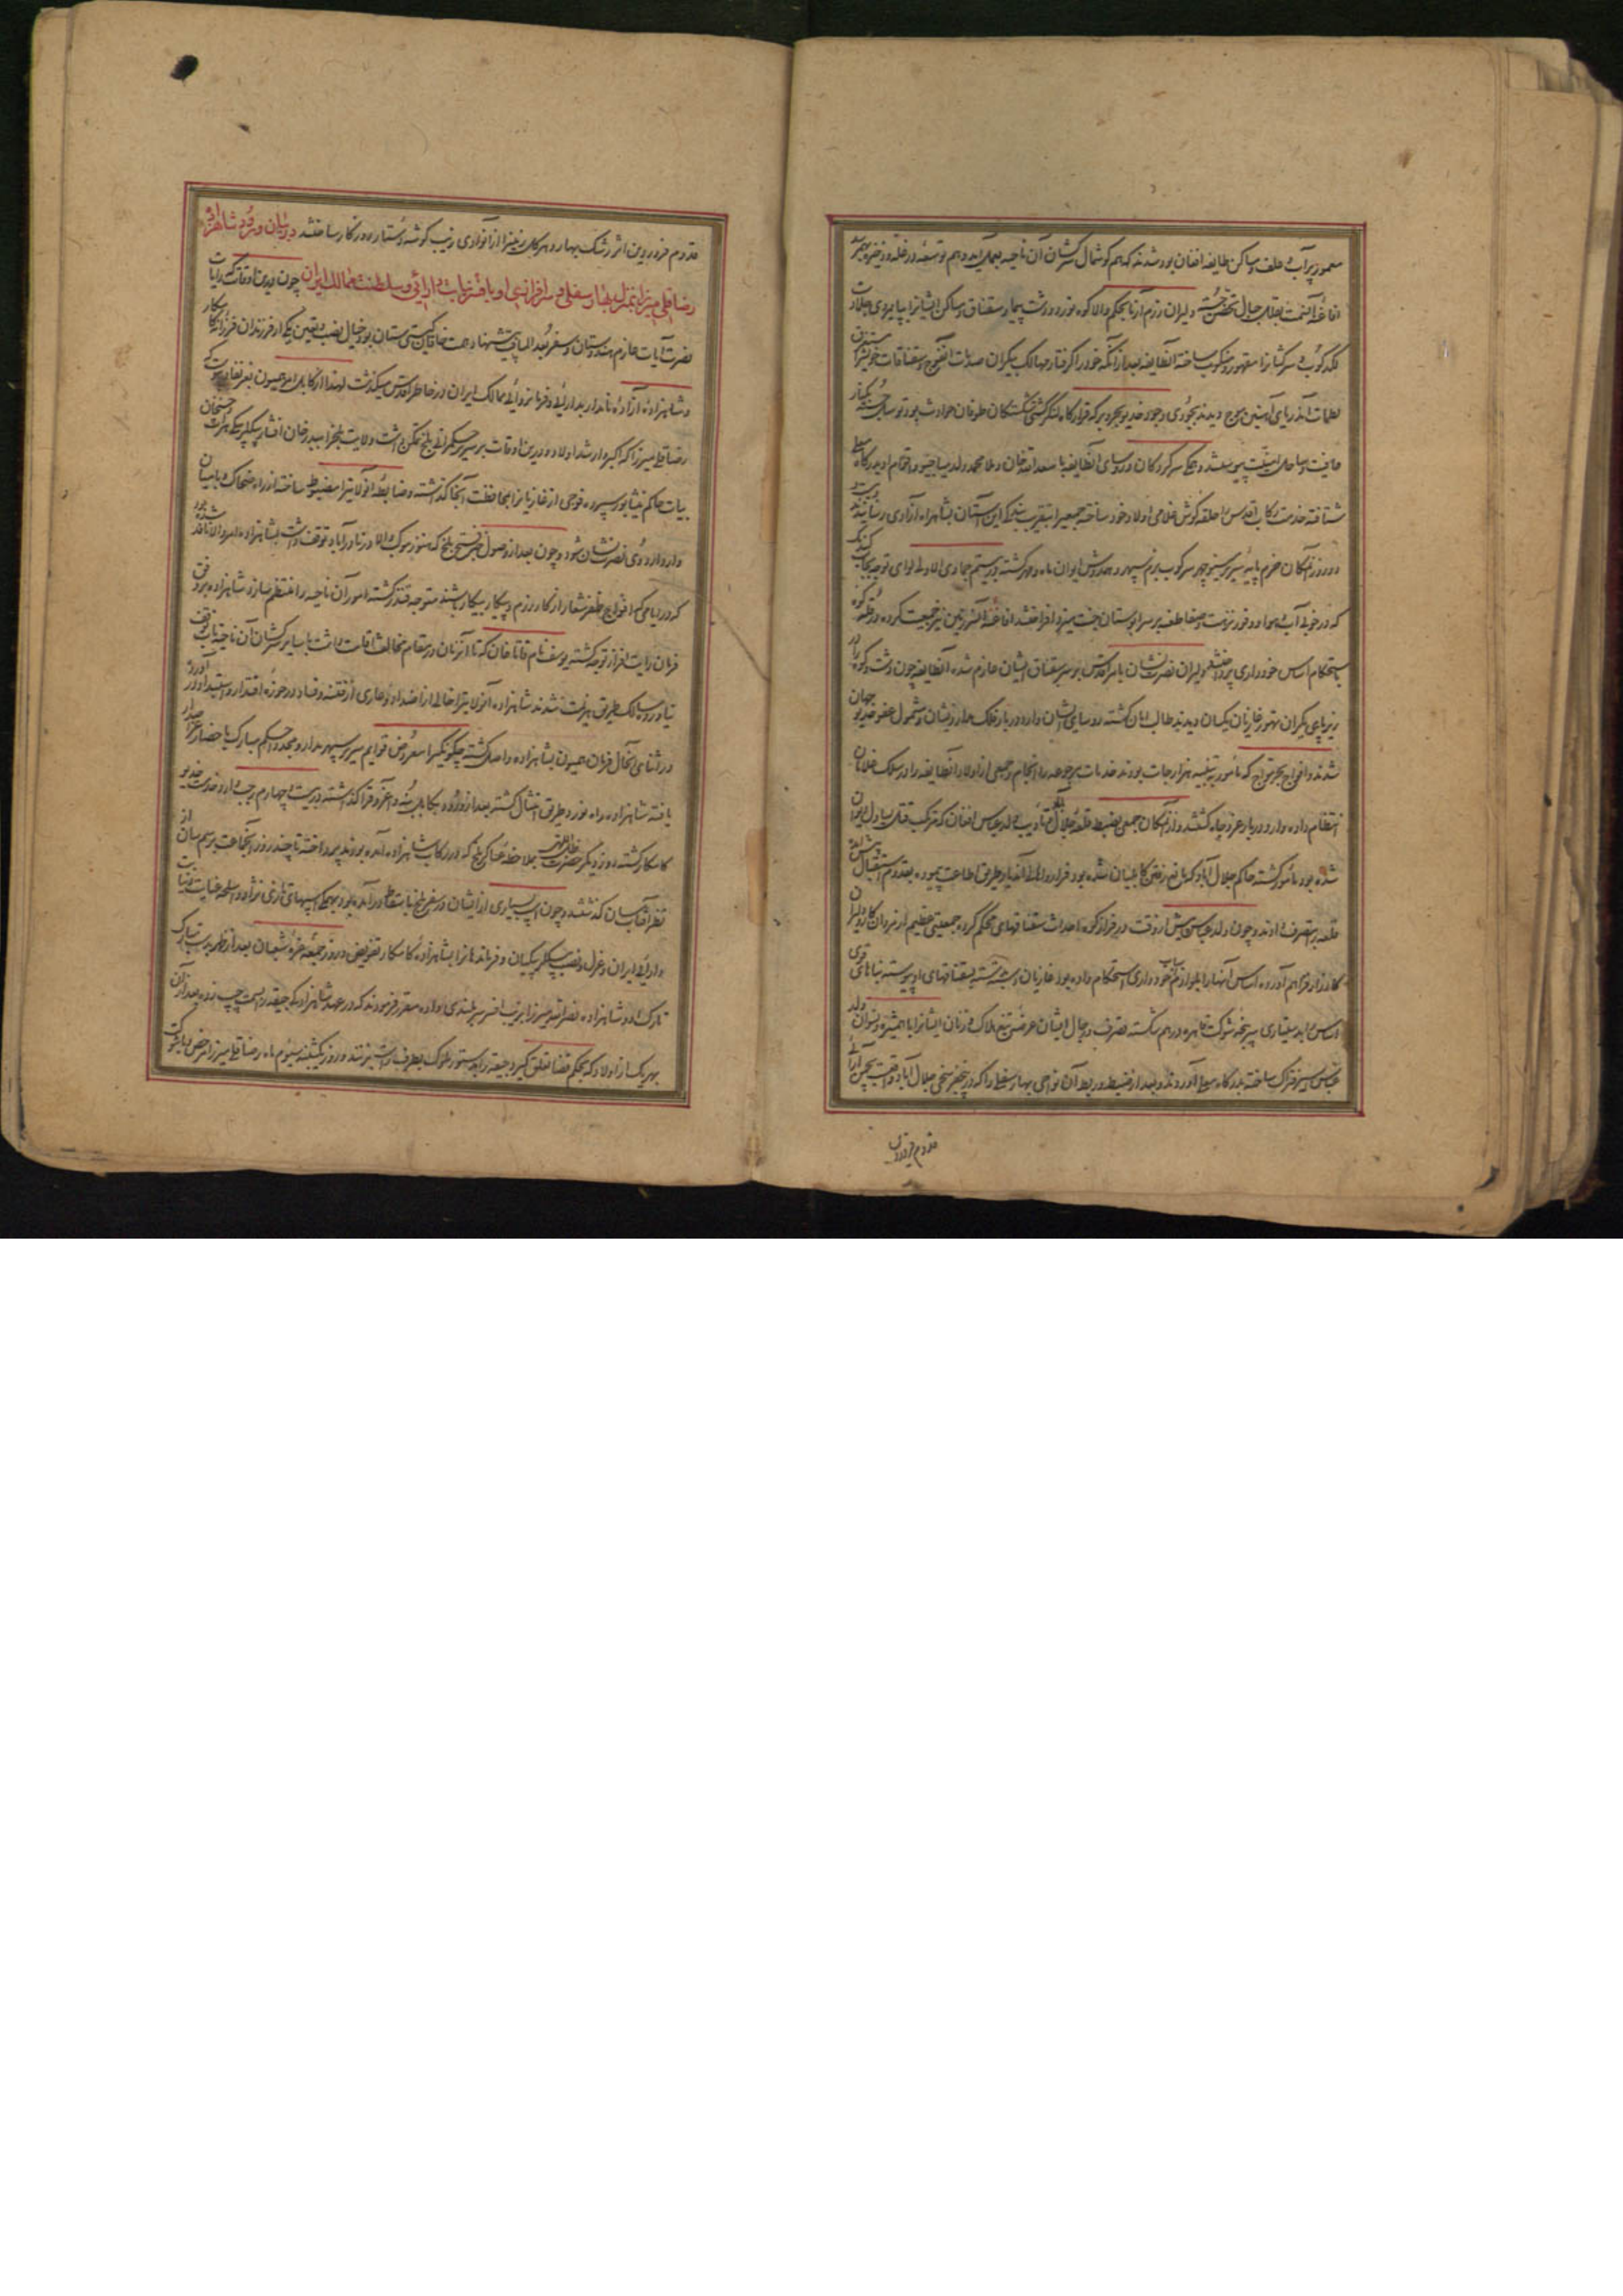 معمور پرآب و علف و مساکن طایفه افغان بود شدند که هم گوشمال سرکشان آن ناحیه بعمل آید و هم توسعه در غله و ذخیره بهم رسد
افاغنه آن سمت بقلاب جبال تحصن جسته دلیران رزم آزما بحکم والا کوه نورد و دشت پیما و سقناق و مساکن ایشانرا بپایمردی جلادت
لگدکوب و سرکشانرا مقهور و منکوب ساخته آنطایفه بعد از آنکه خود را گرفتار مهالک بیکران صدمات افواج و سقناقات خویش را
لطمات آن دریای آهنین موج دیدند بجودی وجود خدیو بحر و بر که قرارگاه لنگر کشتی شکستگان طوفان حوادث بود توسل جسته بکنار
عافیت و ساحل امنیت پیوستند و جمعی سرکردگان و روسای آنطایفه با سعدالله خان و ملا محمد ولد میاجیو اتمام او بدرگاه معلی
شتافته خدمت رکاب اقدس را حلقه گوش غلامی اولاد خود ساخته جمعی را بتقریب بندگی این آستان بشاهراه آزادی رسانیدند
دو روز آنمکان خرم پایه سریر مینو چهر سرکوب بزم سپهر و همدوش ایوان ماه و مهر گشته در بیستم جمادی الاولی لوای توجه بجانب گندمک
که در خوبی آب و هوا و وفور نزهت و صفا طعنه بر سرابوستان جنت میزد افراختند افاغنه آن سرزمین نیز جمعیت کرده در قلل کوه
باستحکام اساس خودداری پرداختند دلیران نصرت نشان بامر اقدس بر سر سقناق ایشان عازم شده آنطایفه چون دشت و کوه را در
زیر پای یکران تهور غازیان یکسان دیدند طالب امان گشته روسای ایشان وارد دربار فلک مدار و ایشان مشمول عفو خدیو جهان
شدند و افواج بحر امواج که مامور به تنبیه هزارجات بودند خدمات مرجوعه را انجام و جمعی از اولاد آنطایفه را در سلک غلامان
انتظام داده وارد دربار عز و جاه گشتند و از آنمکان جمعی بضبط قلعه جلال آباد و تادیب ولد عباس افغان که مرتکب قتل یساول دیوان
شده بود مامور گشته حاکم جلال آباد که مانع رفتن کابلیان شده بود فرار و اهالی انقیاد و طریق اطاعت پیموده بقدم استقبال پیش آمده
قلعه را بتصرف دادند و چون ولد عباس پیش از وقت در فراز کوه احداث سقناقهای محکم کرده جمعیتی عظیم از مردان کار و دلیران
کارزار فراهم آورده اساس آنها را بلوازم اسباب خودداری استحکام داده بود غازیان دست بسته بسقناقهای او پیوسته بناهای قوی
اساس را بدستیاری سرپنجه شوکت قاهره درهم شکسته تصرف و رجال ایشان عرضه تیغ هلاک و زنان ایشانرا با همشیره و نسوان ولد
عباس اسیر فتراک ساخته بدرگاه معلی آوردند و بعد از ضبط و ربط آن نواحی بهار سفلی را که در پنج فرسخی جلال آباد واقعست بچمن آرائی
قدوم فروردین
قدوم فروردین اثر رشک بهار و هر گل زمین را از آن وادی زیب گوشه دستار روزگار ساختند در بیان ورود شاهزاده
رضاقلی میرزا بمنزل بهار سفلی و سرافرازی او بافسر نیابت و دارائی و سلطنت ممالک ایران چون درین اوقات که رایات
نصرت آیات عازم هندوستان و سفر بعد المسافت پیشنهاد همت خاقان گیتی ستان بود خیال نصب و تعیین یکی از فرزندان فرزانه کامکار
و شاهزاده آزاده نامدار بدارائی و فرمانروائی ممالک ایران در خاطر اقدس میگذشت لهذا از کابل امر همیون بعز نفاذ پیوست که
رضاقلی میرزا که اکبر و ارشد اولاد و درین اوقات بر سریر حکمرانی بلخ تمکن داشت ولایت بلخ را به بدرخان افشار بیگلربیگی هرات و حسنخان
بیات حاکم نیشابور سپرده فوجی از غازیانرا بمحافظت آنجا گذاشته و ضابطه آنولایترا مضبوط ساخته از راه ضحاک و بامیان
وارد اردوی نصرت نشان شود و چون بعد از وصول خبر فتح بلخ که هنوز موکب والا در نادرآباد توقف داشت بشاهزاده امر والا نافذ شده بود
که در ایامی که افواج ظفر شعار از کار رزم و پیکار بیکار باشند متوجه قندز گشته امور آن ناحیه را منتظم سازد شاهزاده بر وفق
فرمان رایت افراز توجه گشته یوسف نام قاتا خان که تا آنزمان در مقام مخالفت اقامت داشت با سایر سرکشان آن ناحیه تاب توقف
نیاورده سالک طریق هزیمت شدند شاهزاده آنولایترا خالی از اضداد و عاری از فتنه و فساد در حوزه اقتدار و استبداد درآورده
در اثنای آنحال فرمان همیون بشاهزاده واصل گشته چگونگی را معروض قوایم سریر سپهر مدار و مجددا حکم مبارک باحضار عز اصدار
یافته شاهزاده راه نورد طریق امتثال گشته بعد از ورود بکابل بنه و اغرق را گذاشته در بیست و چهارم رجب وارد خدمت خدیو
کامکار گشته روز دیگر حضرت ظل اللهی بملاحظه عساکر بلخ که در رکاب شاهزاده آمده بودند پرداخته تا چند روز آنجماعت برسم سان از
نظر آفتاب سان گذشتند و چون اسب بسیاری از ایشان در سفر بلخ بسقط درآمده بود بهمگی اسبهای تازی نژاد و اسلحه عنایت و نیابت
دارائی ایران و عزل و نصب بیگلربیگیان و فرماندهانرا بشاهزاده کامکار تفویض و در روز جمعه غره شعبان بعد از ظهر بدست مبارک
تارک او و شاهزاده نصرالله میرزا بزیب افسر سربلندی داده مقرر فرمودند که در عهد شاهزادگی جیقه را بسمت چپ زده بعد از آن
بهریک از اولاد که بحکم قضا تعلق گیرد جیقه را بدستور ملوک بطرف راست زنند و روز یکشنبه سیوم ماه رضاقلی میرزا مرخص و با شوکت